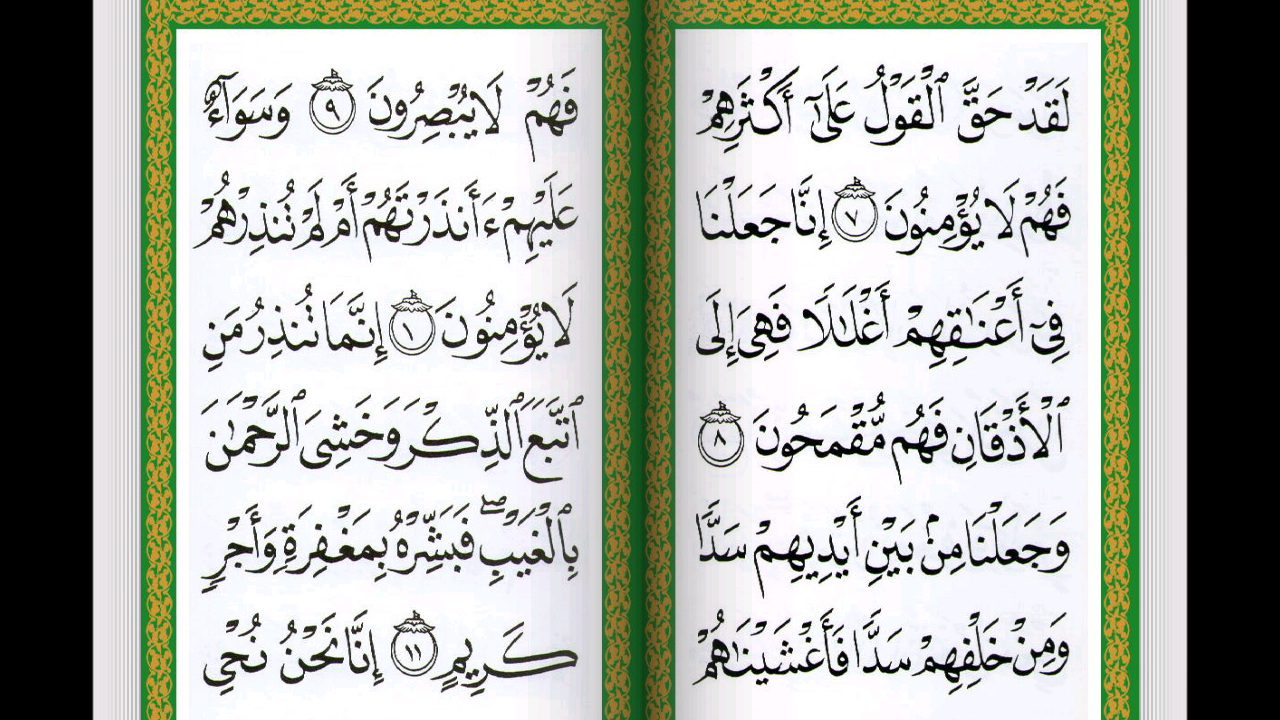 لَقَدْ حَقَّ ٱلْقَوْلُ عَلَىٰٓ أَكْثَرِهِمْ
فَهُمْ لَا يُؤْمِنُونَ ٧ إِنَّا جَعَلْنَا
فِىٓ أَعْنَـٰقِهِمْ أَغْلَـٰلًا فَهِىَ إِلَى
ٱلْأَذْقَانِ فَهُم مُّقْمَحُونَ ٨
وَجَعَلْنَا مِنۢ بَيْنِ أَيْدِيهِمْ سَدًّا
وَمِنْ خَلْفِهِمْ سَدًّا فَأَغْشَيْنَـٰهُمْ
فَهُمْ لَا يُبْصِرُونَ ٩ وَسَوَآءٌ
عَلَيْهِمْ ءَأَنذَرْتَهُمْ أَمْ لَمْ تُنذِرْهُمْ
لَا يُؤْمِنُونَ ١ إِنَّمَا تُنذِرُ مَنِ
ٱتَّبَعَ ٱلذِّكْرَ وَخَشِىَ ٱلرَّحْمَـٰنَ
بِٱلْغَيْبِ ۖ فَبَشِّرْهُ بِمَغْفِرَةٍ وَأَجْرٍ
كَرِيمٍ ١١ إِنَّا نَحْنُ نُحْىِ